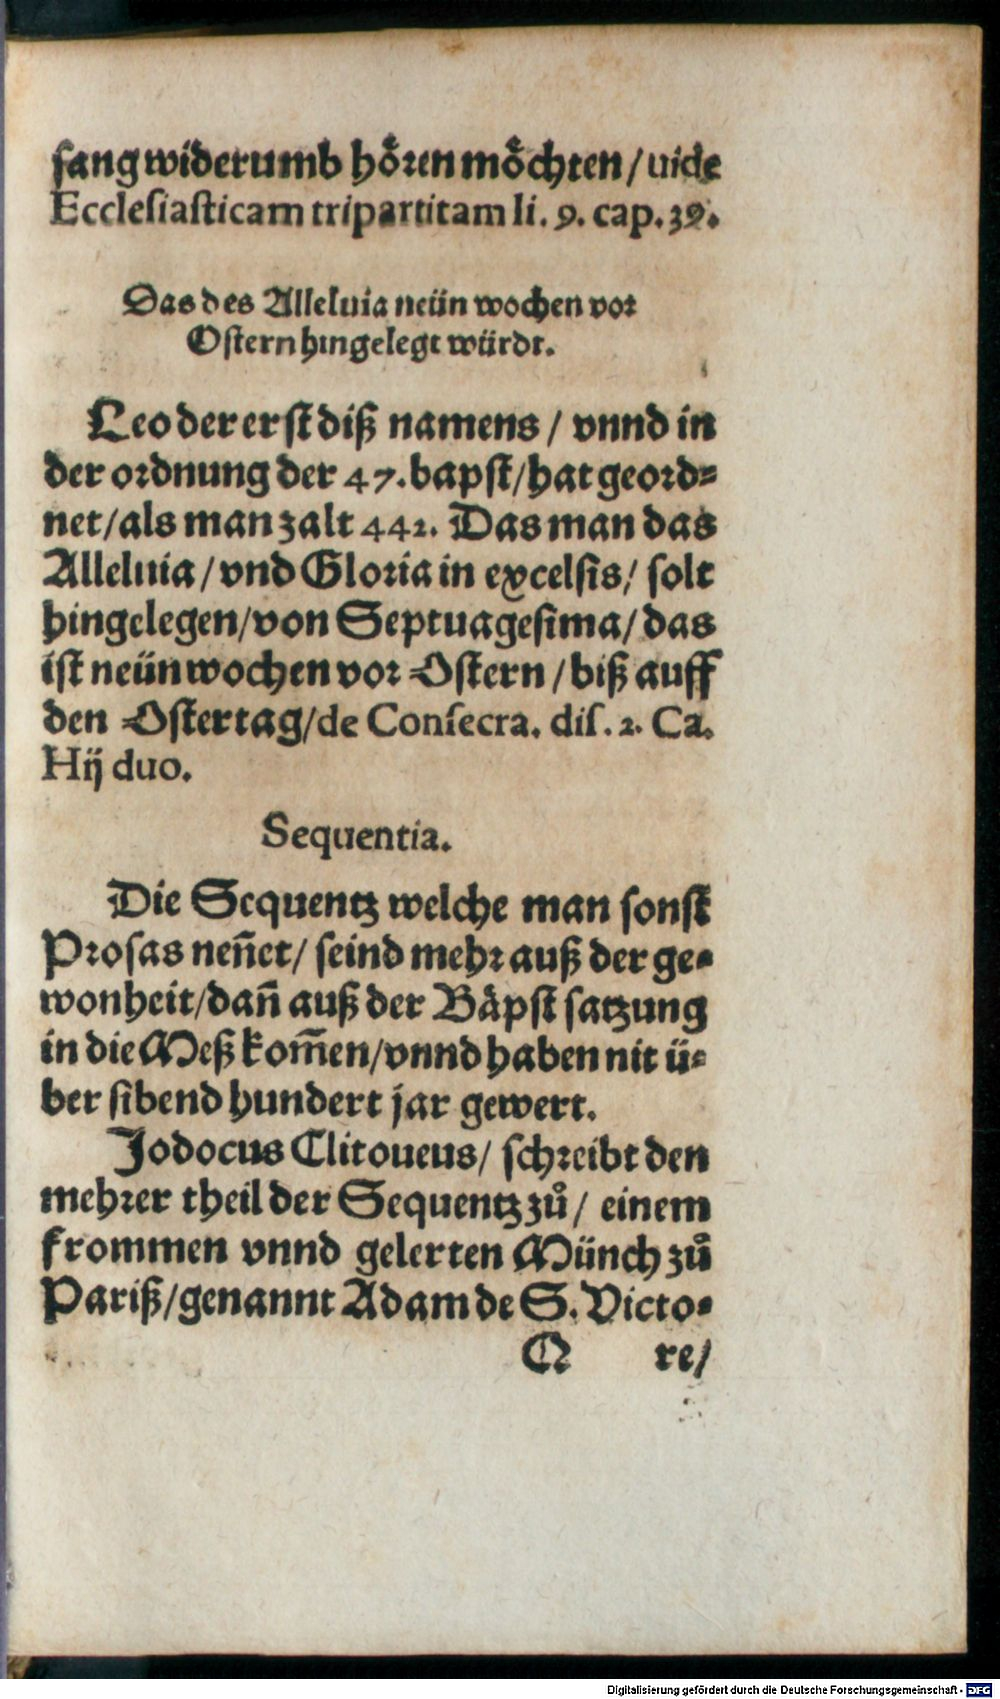 sang widerumb hoͤren moͤchten / uide
Ecclesiasticam tripartitam li. 9. cap. 39.
Das des Alleluia neün wochen vor
Ostern hingelegt würdt.
Leo der erst diß namens / vnnd in
der ordnung der 47. bapst / hat geord⸗
net / als man zalt 442. Das man das
Alleluia / vnd Gloria in excelsis / solt
hingelegen / von Septuagesima / das
ist neün wochen vor Ostern / biß auff
den Ostertag / de Consecra. dis. 2. Ca.
Hij duo.
Sequentia.
Die Sequentz welche man sonst
Prosas nen̄et / seind mehr auß der ge⸗
wonheit / dan̄ auß der Bäpst satzung
in die Meß kom̄en / vnnd haben nit ü⸗
ber sibend hundert jar gewert.
Jodocus Clitoueus / schreibt den
mehrer theil der Sequentz zuͦ / einem
frommen vnnd gelerten Münch zuͦ
Pariß / genannt Adam de S. Victo⸗
Q re /
Digitalisierung gefördert durch die Deutsche Forschungsgemeinschaft - DFG